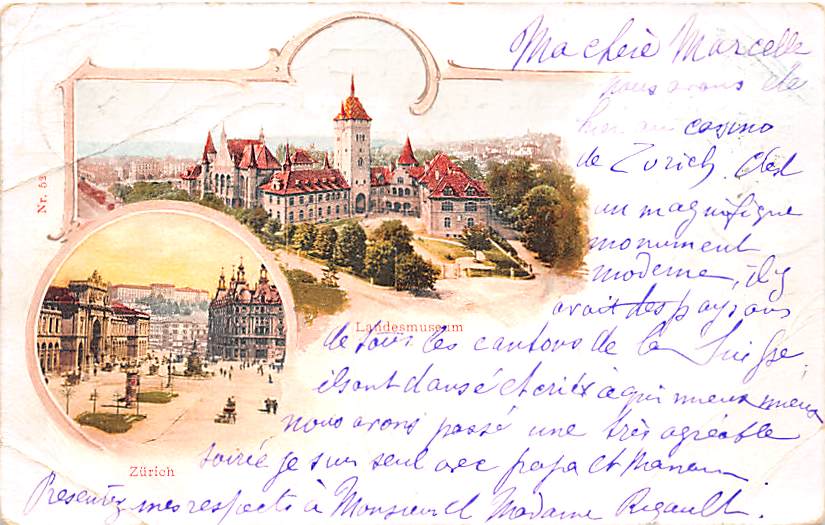 Ma chère Marcelle
nous avons été
hier au casino
de Zurich. C'est
un magnifique
monument
moderne, il y
avait des paysans
de tous les cantons de la Suisse.
ils ont dansé et crié à qui mieux mieux
nous avons passé une très agréable
soirée je suis seul avec papa et maman.
Presentez mes respects à Monsieur et Madame Rigault.
Nr. 52
Landesmuseum
Zürich